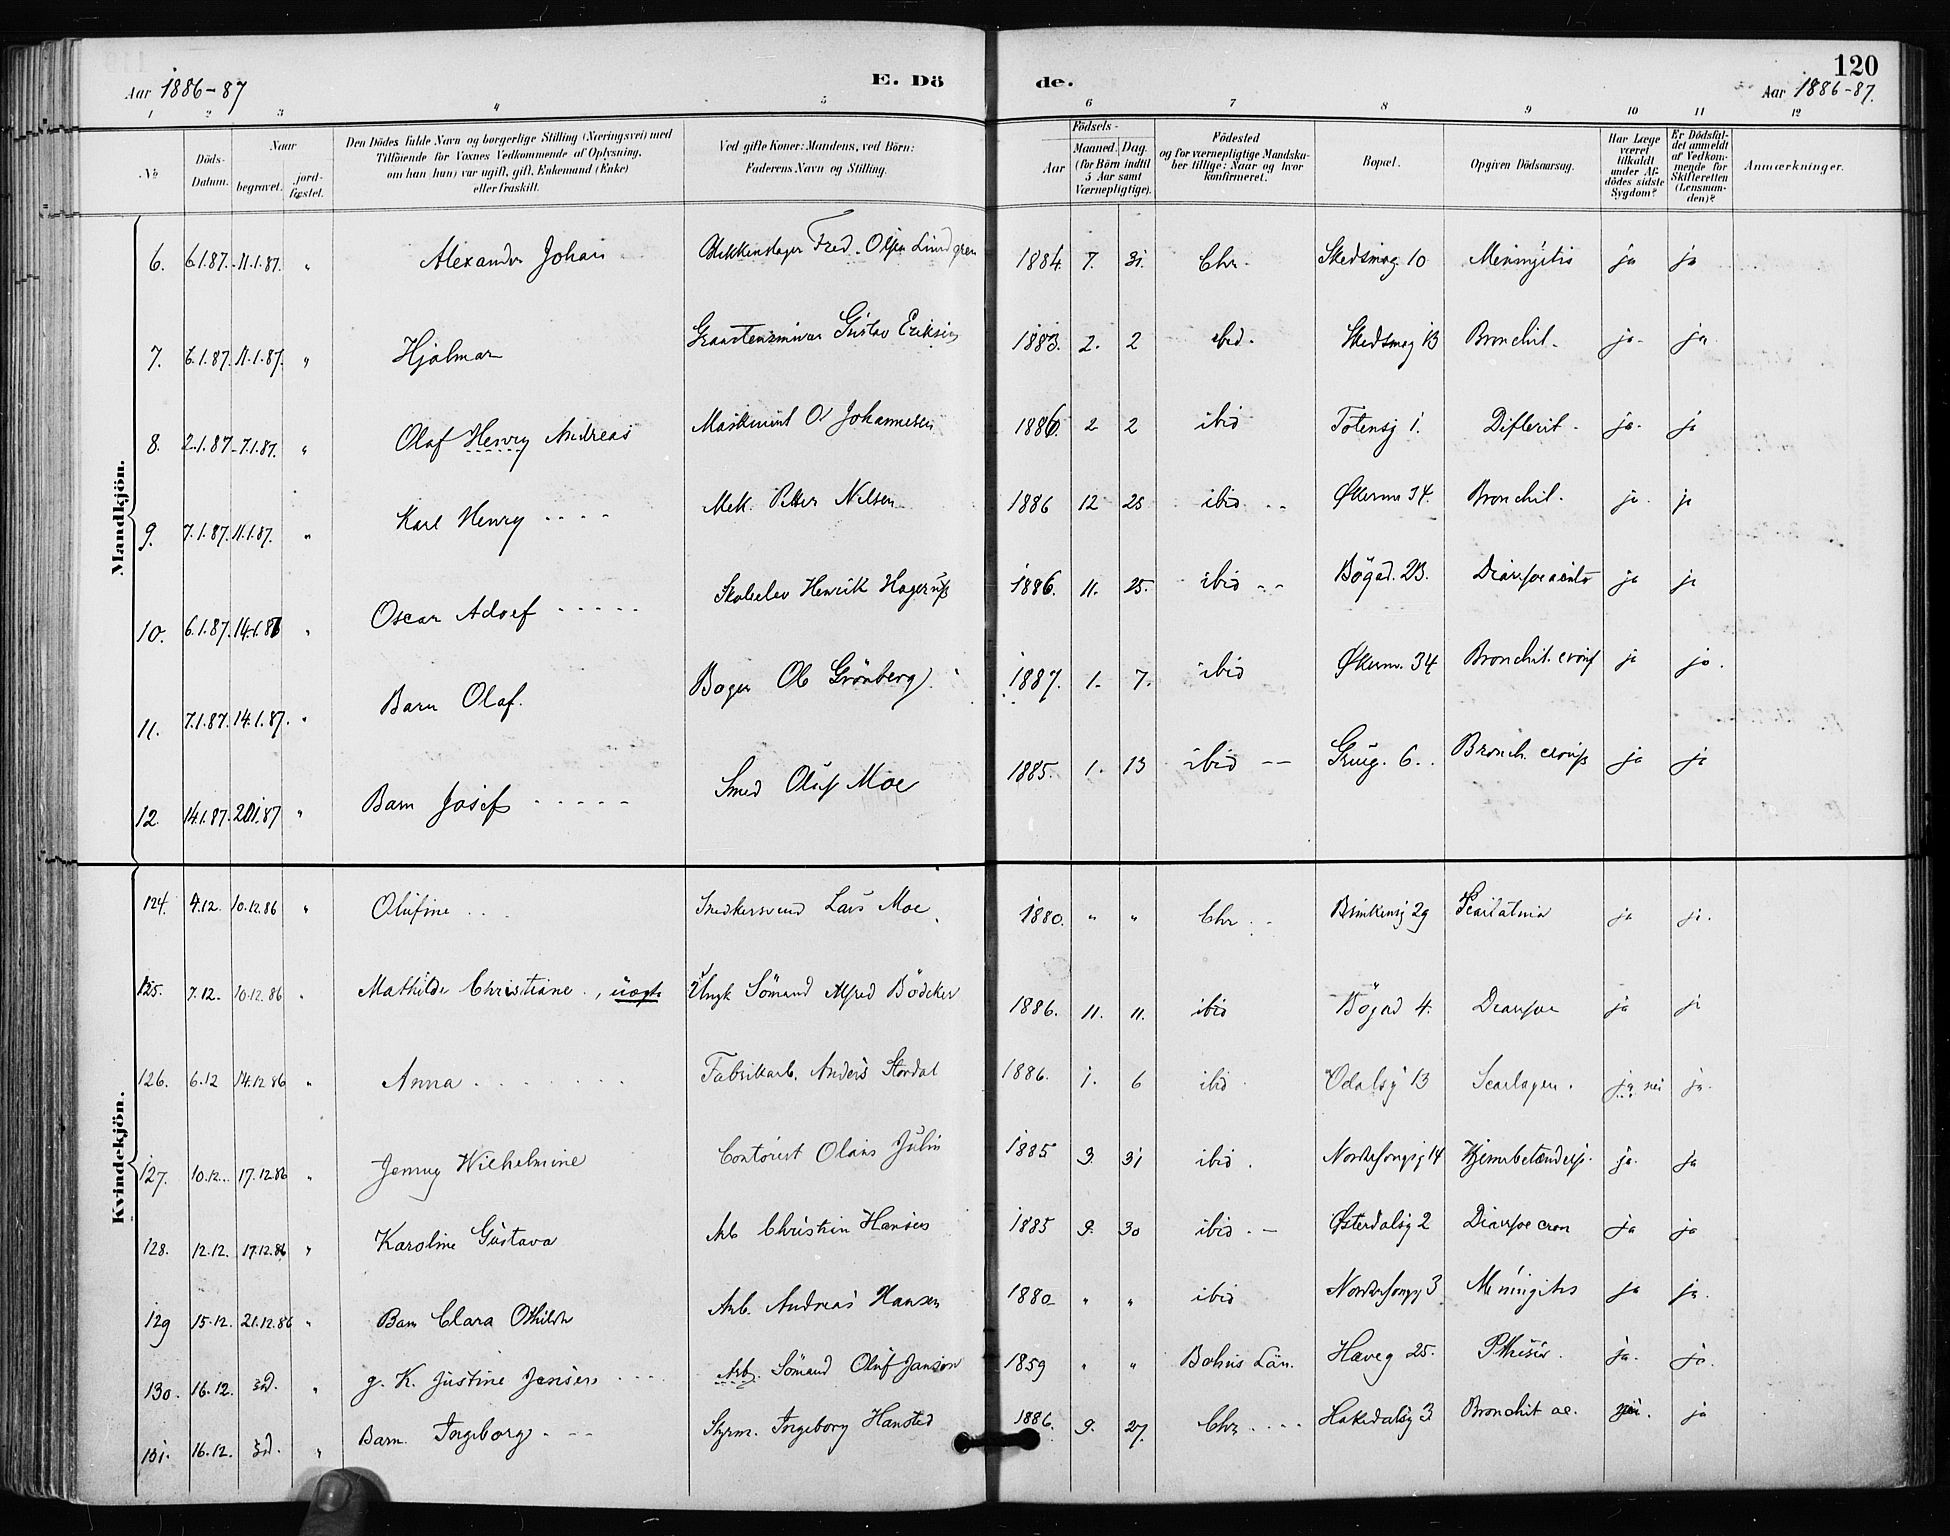 120
Aar 1886-87 E. Dö de. Aar 1886-87.
1 2 3 4 5 6 7 8 9 10 11 12
No Döds-Datum. Naar begravet. jord-fæstet. Den Dödes fulde Navn og borgerlige Stilling (Næringsvei) med Tilföiende for Voxnes Vedkommende af Oplysning, om han (hun) var ugift, gift, Enkemand (Enke) eller fraskilt. Ved gifte Koner: Mandens, ved Börn: Faderens Navn og Stilling. Födsels- Aar Maaned. Dag. (for Börn indtil 5 Aar samt Værnepligtige). Födested og for værnepligtige Mandska-ber tillige: Naar og hvor konfirmeret. Bopæl. Opgiven Dödsaarsag. Har Læge været tilkaldt under Af-dödes sidste Sygdom? Er Dödsfal-det anmeldt af Vedkom-mende for Skifteretten (Lensman-den)? Anmærkninger.
Mandkjön.
6. 6.1.87. 11.1.87. " Alexander Johan Blikkenslager Fred. Olsen Lindgren 1884. 7. 31. Chr. Skedsmog. 10 Meningitis ja ja
7. 6.1.87. 11.1.87. " Hjalmar Graastensminer Gustav Eriksen 1883. 2. 2 ibid. Skedsmog 13 Bronchit. ja. ja.
8. 2.1.87. 7.1.87. " Olaf Henry Andreas Maskinist O Johannesen 1886. 2 2 ibid Totensg 1. Difterit. ja. ja
9. 7.1.87. 11.1.87. " Karl Henry Mek. Petter Nilsen 1886 12 25 ibid. Økernv 34. Bronchit. ja. ja
10. 6.1.87. 14.1.87 " Oscar Adolf Skoleelev Henrik Hagerup 1886. 11. 25. ibid Bögad. 23. Diarrhoe acuta ja ja
11. 7.1.87. 14.1.87. " Barn Olaf. Bager Ole Grönberg. 1887. 1. 7. ibid Økernv. 34 Bronchit. croup ja ja.
12. 14.1.87. 20.1.87 " Barn Josef Smed Oluf Moe 1885. 1. 13 ibid Grüg. 6. Bronch. croup ja ja
Kvindekjön.
124. 4.12. 10.12.86 " Olufine Snedkersvend Lars Moe 1880. " " Chr. Brinkensg 29 Scarlatina ja ja.
125. 7.12. 10.12.86 " Mathilde Christiane, uægte Ungk Sömand Alfred Bödcker 1886. 11. 11. ibid Bögad 4. Diarrhoe ja ja
126. 6.12 14.12.86 " Anna Fabrikarb. Anders Stordal 1886. 1. 6 ibid Odalsg 13 Scarlagen. ja nei ja.
127. 10.12. 17.12.86 " Jenny Wilhelmine Contorist Olaus Julin 1885 3. 31 ibid. 14 ja. ja
128. 12.12. 17.12.86 " Karoline Gustava Arb Christian Hansen 1885 9. 30 ibid. Østerdalsg 2 Diarrhoe cron ja ja
129 15.12. 21.12.86 " Barn Clara Othilde Arb. Andreas Hansen 1880 " " ibid 3 Meningitis ja ja.
130. 16.12. sd. " g. K. Justine Jansen Arb. Sömand Oluf Janson 1859 " " Bohus Län. Haveg 25. Pthisis. ja. ja.
131. 16.12. sd. " Barn Ingeborg Styrm. Ingeborg Hansted 1886. 9. 27. Chr. Hakedalsg 3 Bronchit ac. nei. ja